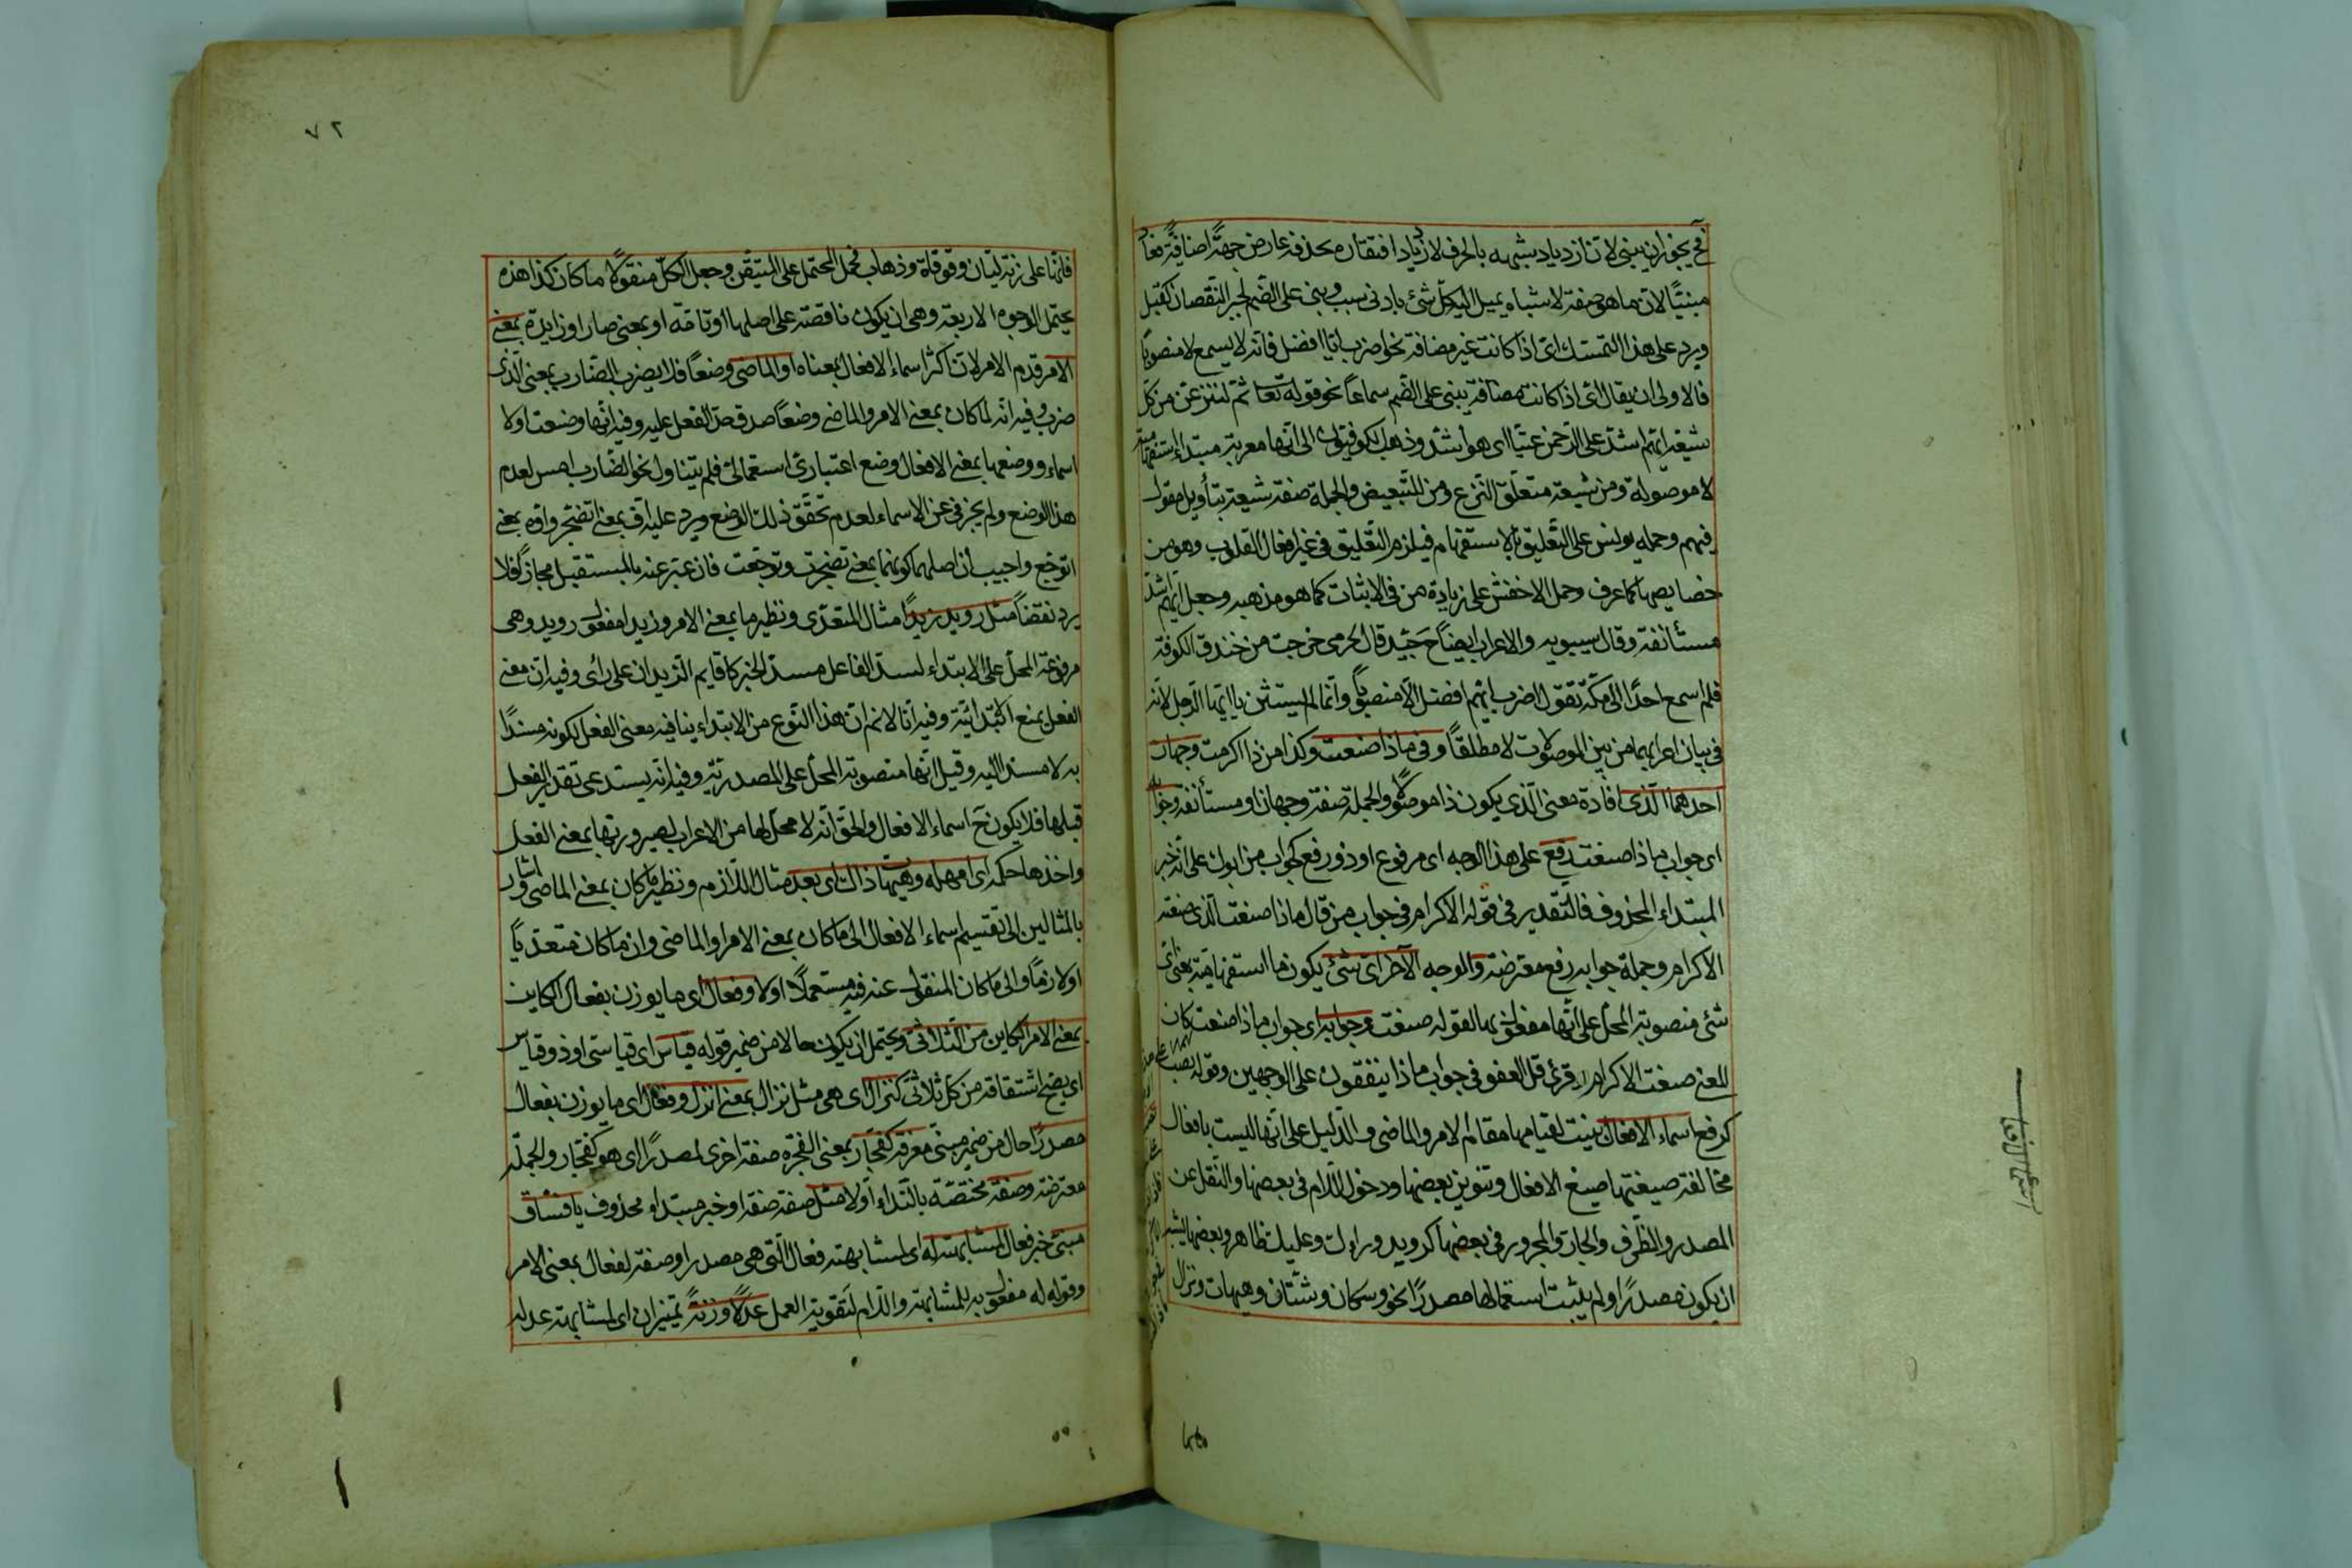 فح يجوز ان يبنى لا تزاد زدياد شبهه بالحرف لازدياد افتقاره بحذفه عارض جهة اضافة فعاد
مبنيًا لان ما هو صفة لاشباه يميل اليه كل شئ بادنى سبب وبنى على الضم لجبر النقصان كقبل
ويرد على هذا التمسك اى اذا كانت غير مضافة نحو اضرب ايا افضل فانه لا يسمع الا منصوبا
فالاولى ان يقال اى اذا كانت مضافة يبنى على الضم سماعا نحو قوله تعا ثم لننزعن من كل
شيعة ايهم اشد على الرحمن عتيا اى هو اشد وذهب الكوفيون الى انها معربة مبتداء استفهامية
لا موصولة ومن شيعة متعلق النزع ومن للتبعيض والجملة صفة شيعة بتأويل مقول
فيهم وحمله يونس على التعليق بالاستفهام فيلزم التعليق فى غير افعال القلوب وهو من
خصايصها كما عرف وحمل الاخفش على زيادة من فى الاثبات كما هو مذهبه وجعل ايهم اشد
مستأنفة وقال سيبويه والاعراب ايضا جيد قال الجرمى خرجت من خندق الكوفة
فلم اسمع احدا الى مكة تقول اضرب ايهم افضل الا منصوبا وانما لم يستثن يا ايها الرجل لانه
فى بيان اعرابها من بين الموصولات لا مطلقا وفى ماذا صنعت وكذا من ذا اكرمت وجهان
احدهما الذى افادة معنى الذى يكون ذا موصولا والجملة صفة وجهان او مستأنفة وجوابه
اى جواب ماذا صنعت رفع على هذا الوجه اى مرفوع او ذو رفع كجواب من ابوك على انه خبر
المبتداء المحذوف فالتقدير فى قوله الاكرام فى جواب من قال ماذا صنعت الذى صنعته
الاكرام وجملة جوابه رفع معترضة والوجه الآخر اى شئ يكون ما استفهامية بمعنى اى
شئ منصوبة المحل على انها مفعول بها لقوله صنعت وجوابه اى جواب ماذا صنعت كان
المعنى صنعت الاكرام قرئ قل العفو فى جواب ماذا ينفقون على الوجهين وقوله نصب
كرفع اسماء الافعال بنيت لقيامها مقام الامر والماضى والدليل على انها ليست بافعال
مخالفة صيغتها صيغ الافعال وتنوين بعضها ودخول اللام فى بعضها والنقل عن
المصدر والظرف والجار والمجرور فى بعضها كرويد ووراءك وعليك ظاهر وبعضها يشبه
ان يكون مصدرا ولم يثبت استعمالها مصدرا نحو وسكان وشتان وهيهات ونزال
٧٢
فانها على زنة ليان وقوقاة وذهاب فحمل المحتمل على المتيقن وجعل الكل منقولا ما كان كذا هذه
يحتمل الوجوه الاربعة وهى ان يكون ناقصة على اصلها او تامة او بمعنى صار او زايدة بمعنى
الامر قدم الامر لان اكثر اسماء الافعال بمعناه او الماضى وضعا فلا يضرب الضارب بمعنى الذى
ضرب وفيه انه لما كان بمعنى الامر والماضى وضعا صدق حد الفعل عليه وفيه انها وضعت اولا
اسماء ووضعها بمعنى الافعال وضع اعتبارى استعمالى فلم يتناول نحو الضارب امس لعدم
هذا الوضع ولم يخرج فى عن الاسماء لعدم تحقق ذلك الوضع ويرد عليه اف بمعنى اتضجر واوه بمعنى
اتوجع واجيب ان اصلهما كونهما بمعنى تضجرت وتوجعت فان عبر عنه بالمستقبل مجازا فلا
يرد نقضا مثل رويد زيدا مثال المتعدى ونظير ما بمعنى الامر وزيدا مفعول رويد وهى
مرفوعة المحل على الابتداء لسد الفاعل مسد الخبر كاقايم الزيدان على رائ وفيه ان معنى
الفعل يمنع الابتدائية وفيه انا لا نم ان هذا النوع من الابتداء ينافيه معنى الفعل لكونه مسندا
به لا مسند اليه وقيل انها منصوبة المحل على المصدرية وفيه انه يستدعى تقدير الفعل
قبلها فلا يكون ح اسماء الافعال والحق انه لا محل لها من الاعراب لصيرورتها بمعنى الفعل
واخذها حكمه اى امهله وهيهات ذاك اى بعد مثال اللازم ونظير ما كان بمعنى الماضى واشار
بالمثالين الى تقسيم اسماء الافعال الى ما كان بمعنى الامر او الماضى وان ما كان متعديا
او لازما والى ما كان المنقول عنه فيه مستعملا اولا وفعال اى ما يوزن بفعال الكاين
بمعنى الامر الكاين من الثلاثى ويحتمل ان يكون حالا من ضمير قوله قياس اى قياسى او ذو قياس
اى يصح اشتقاقه من كل ثلاثى كنزال اى هى مثل نزال بمعنى انزل وفعال اى ما يوزن بفعال
مصدرا حال من ضمير مبنى معرفة كفجار بمعنى الفجرة صفة اخرى لمصدرا اى هو كفجار والجملة
معترضة وصفة مختصة بالنداء اولا مثل صفة صفة او خبر مبتداء محذوف يا فساق
مبنى خبر فعال لمشابهته له اى لمشابهته فعال التى هى مصدر او صفة لفعال بمعنى الامر
وقوله له مفعول به للمشابهة واللام لتقوية العمل عدلا وزنة تميزان اى لمشابهة عدله